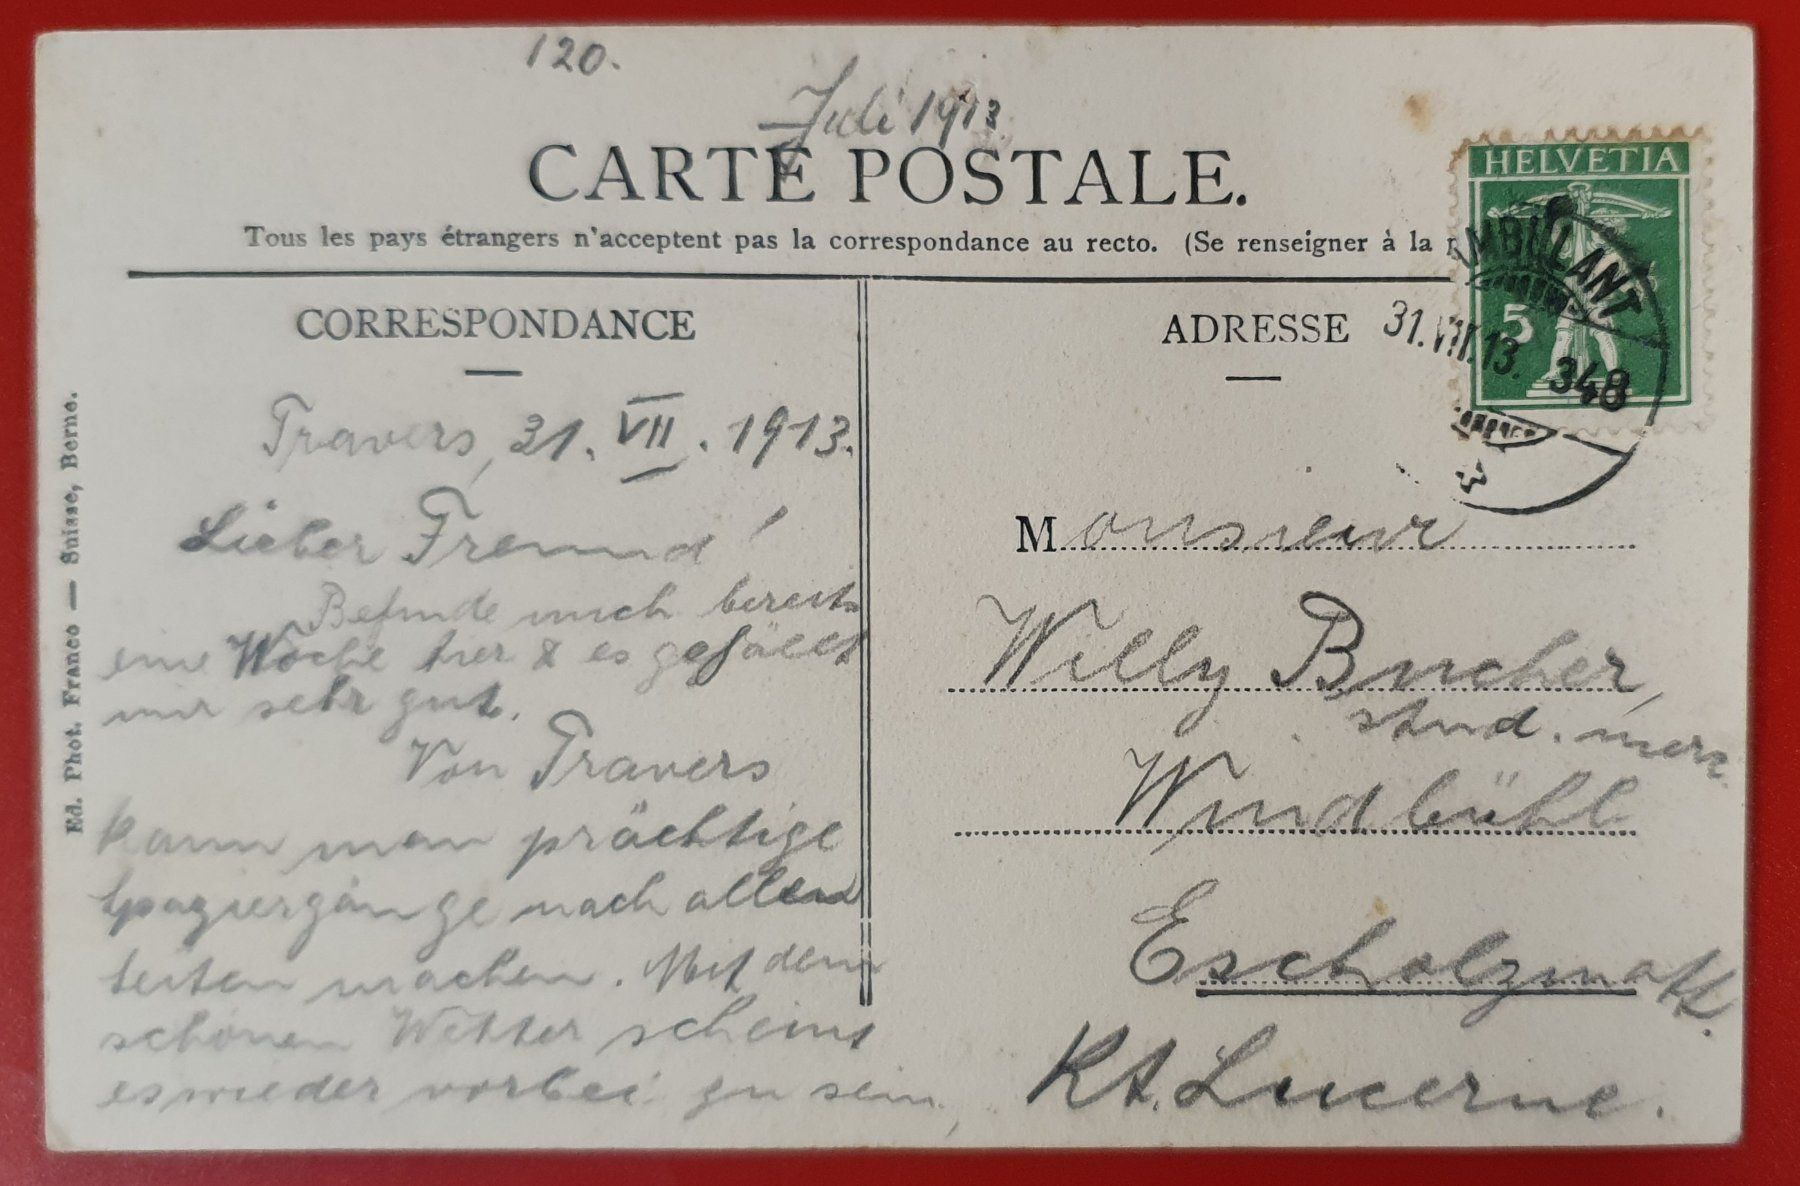 120.
Juli 1913
CARTE POSTALE.
Tous les pays étrangers n'acceptent pas la correspondance au recto. (Se renseigner à la
HELVETIA
5
AMBULANT
31.VII.13.
348
CORRESPONDANCE
ADRESSE
Ed. Phot. Franco — Suisse, Berne.
Travers, 31. VII. 1913.
Lieber Freund!
Befinde mich bereits
eine Woche hier & es gefällt
mir sehr gut.
Von Travers
kann man prächtige
Spaziergänge nach allen
Seiten machen. Mit dem
schönen Wetter scheint
es wieder vorbei zu sein,
Monsieur
Willy Bucher,
stud. merc.
Windbühl
Escholzmatt.
Kt. Lucerne.